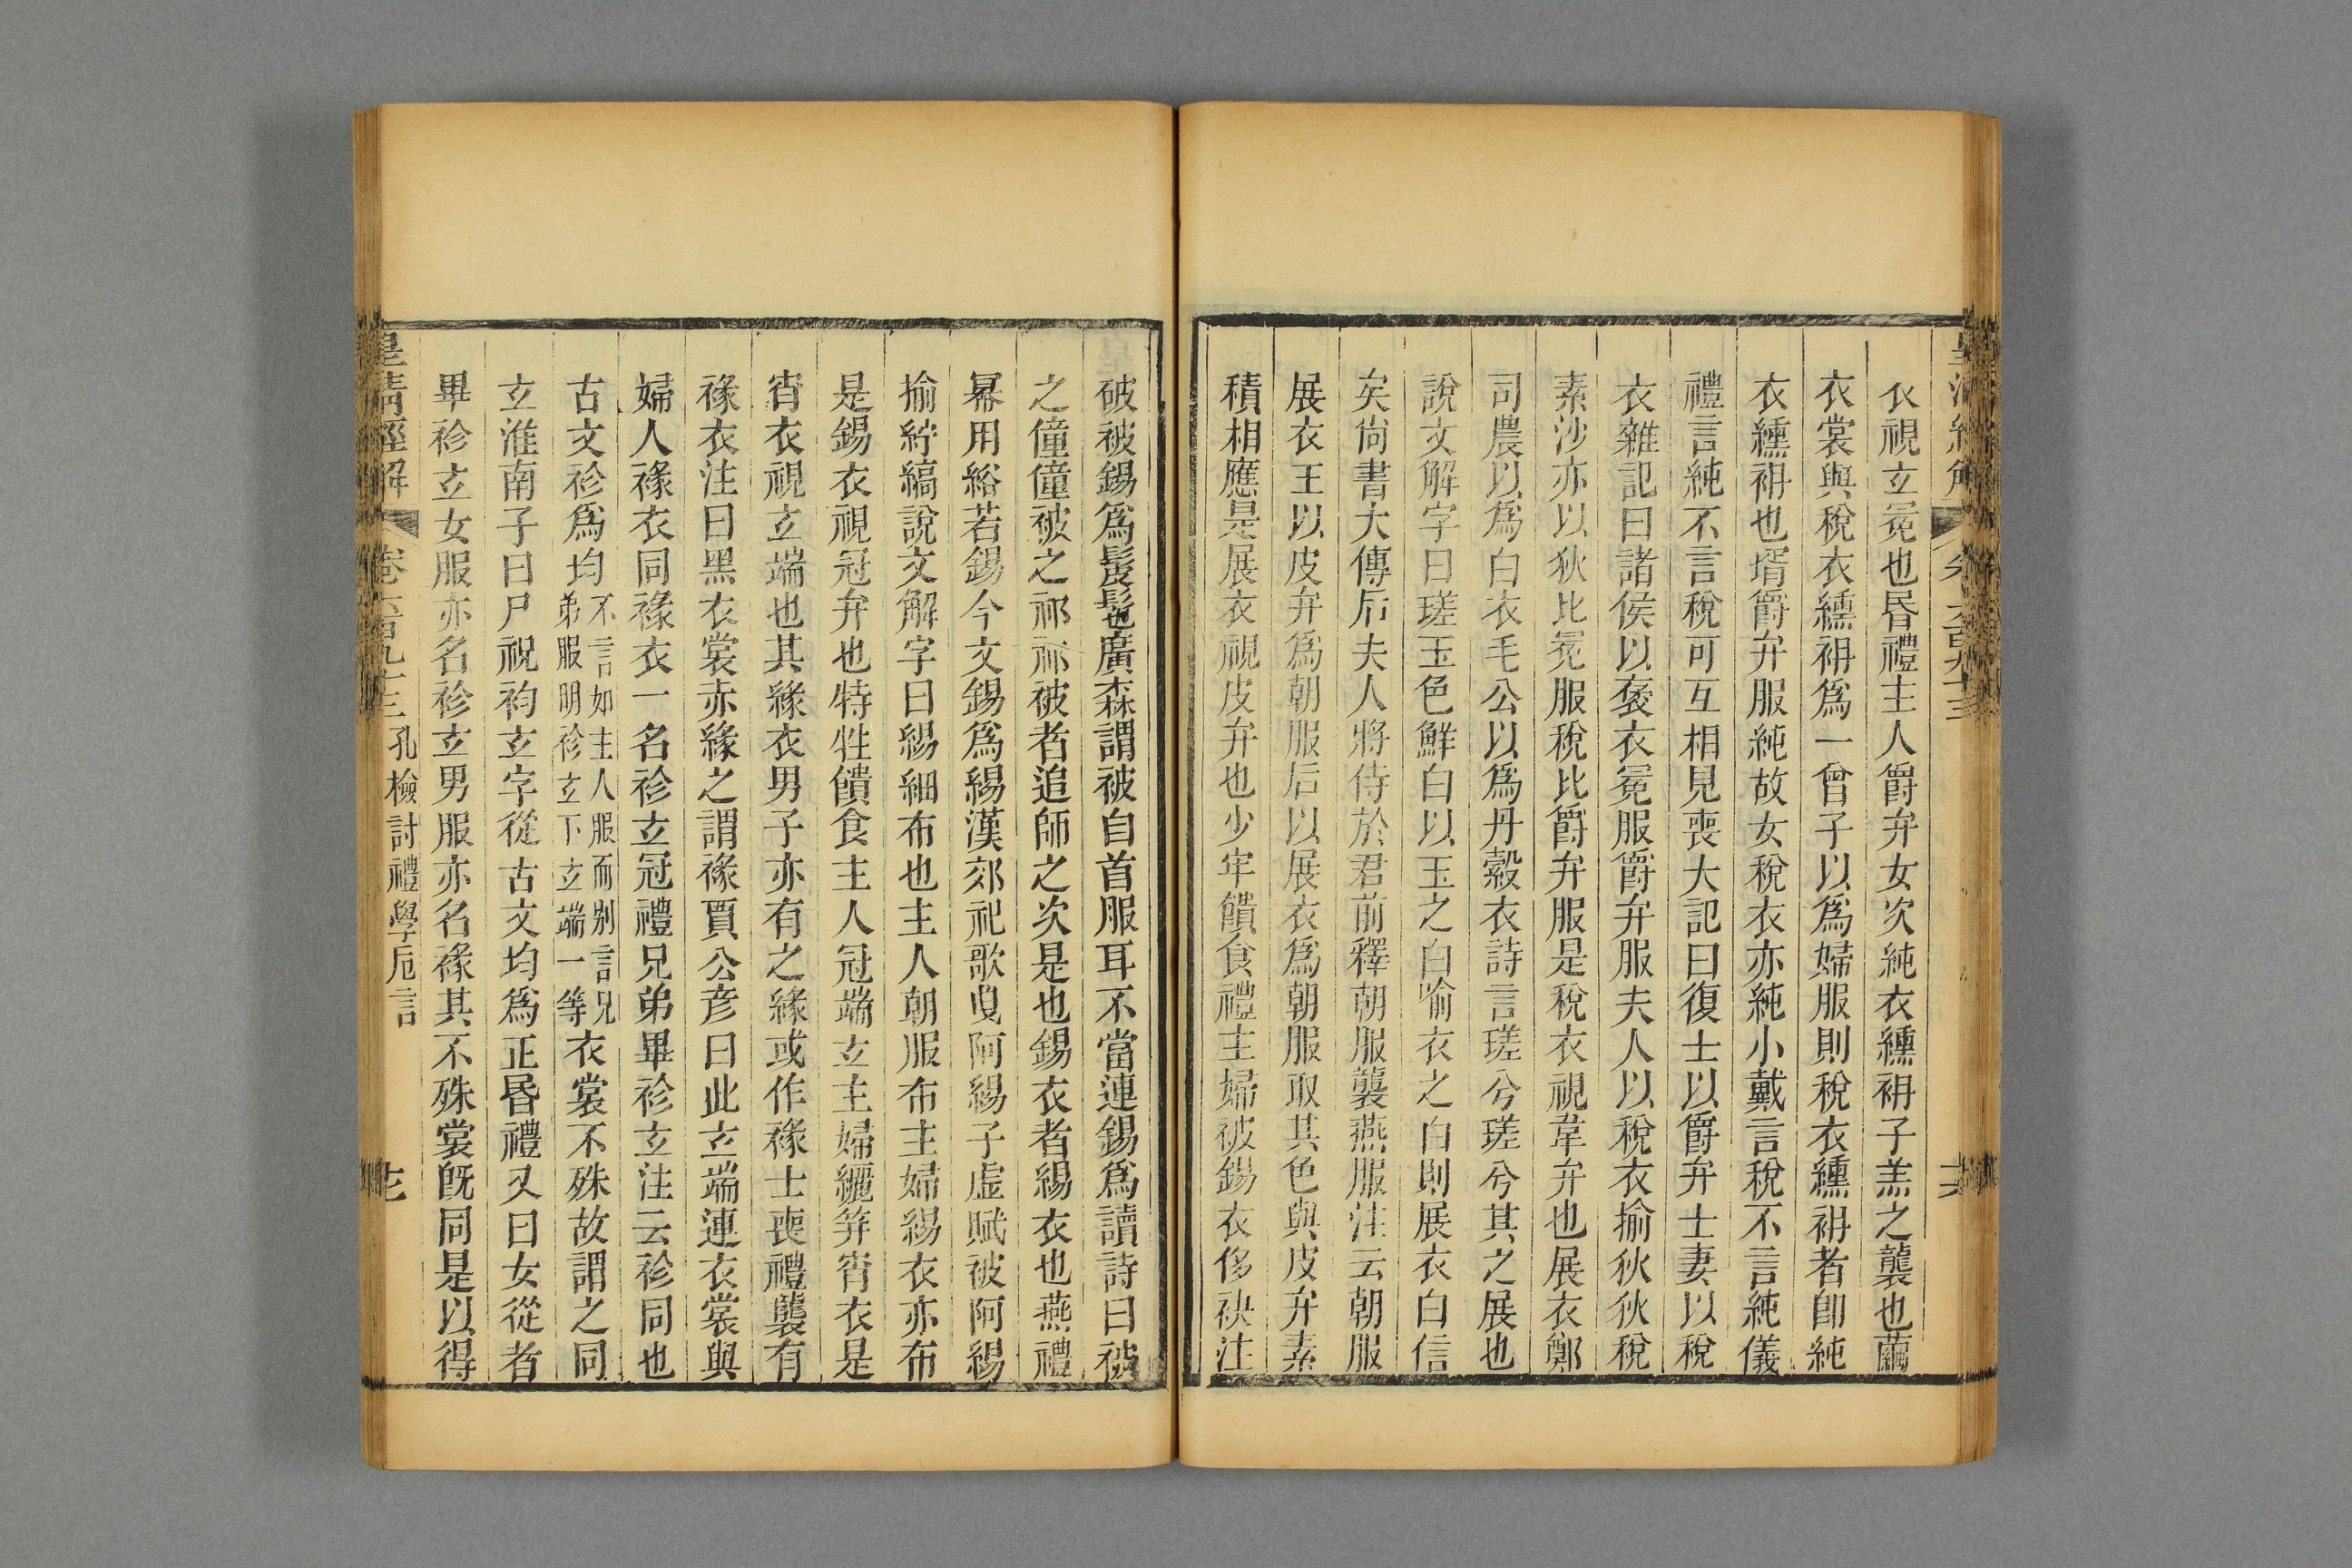 衣視玄冕也昏禮主人爵弁女次純衣纁袡子羔之襲也繭
衣裳與稅衣纁袡爲一曾子以爲婦服則稅衣纁袡者卽純
衣纁袡也壻爵弁服純故女稅衣亦純小戴言稅不言純儀
禮言純不言稅可互相見喪大記曰復士以爵弁士妻以稅
衣雜記曰諸侯以襃衣冕服爵弁服夫人以稅衣揄狄狄稅
素沙亦以狄比冕服稅比爵弁服是稅衣視韋弁也展衣鄭
司農以爲白衣毛公以爲丹縠衣詩言瑳兮瑳兮其之展也
說文解字曰瑳玉色鮮白以玉之白喻衣之白則展衣白信
矣尙書大傳后夫人將侍於君前釋朝服襲燕服注云朝服
展衣王以皮弁爲朝服后以展衣爲朝服取其色與皮弁素
積相應是展衣視皮弁也少牢饋食禮主婦被錫衣侈袂注
破被錫爲髲髢廣森謂被自首服耳不當連錫爲讀詩曰被
之僮僮被之祁祁被者追師之次是也錫衣者緆衣也燕禮
冪用綌若錫今文錫爲緆漢郊祀歌曳阿緆子虛賦被阿緆
揄紵縞說文解字曰緆細布也主人朝服布主婦緆衣亦布
是錫衣視冠弁也特牲饋食主人冠端玄主婦纚笄宵衣是
宵衣視玄端也其緣衣男子亦有之緣或作褖士喪禮襲有
褖衣注曰黑衣裳赤緣之謂褖賈公彦曰此玄端連衣裳與
婦人褖衣同褖衣一名袗玄冠禮兄弟畢袗玄注云袗同也
古文袗爲均不言如主人服而别言兄弟服明袗玄下玄端一等衣裳不殊故謂之同
玄淮南子曰尸祝袀玄字從古文均爲正昏禮又曰女從者
畢袗玄女服亦名袗玄男服亦名褖其不殊裳旣同是以得
皇清經解 卷六百九十三 孔檢討禮學卮言 七